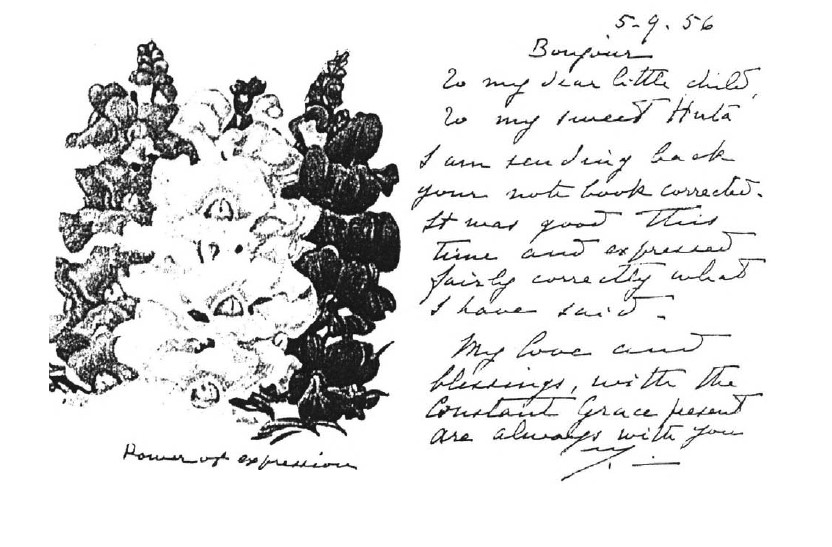 Power of expression
5-9.56
Bonjour
to my dear little child,
to my sweet Huta
I am sending back
your note book corrected.
It was good this
time and expressed
fairly correctly what
I have said.
My love and
blessings, with the
constant Grace present
are always with you